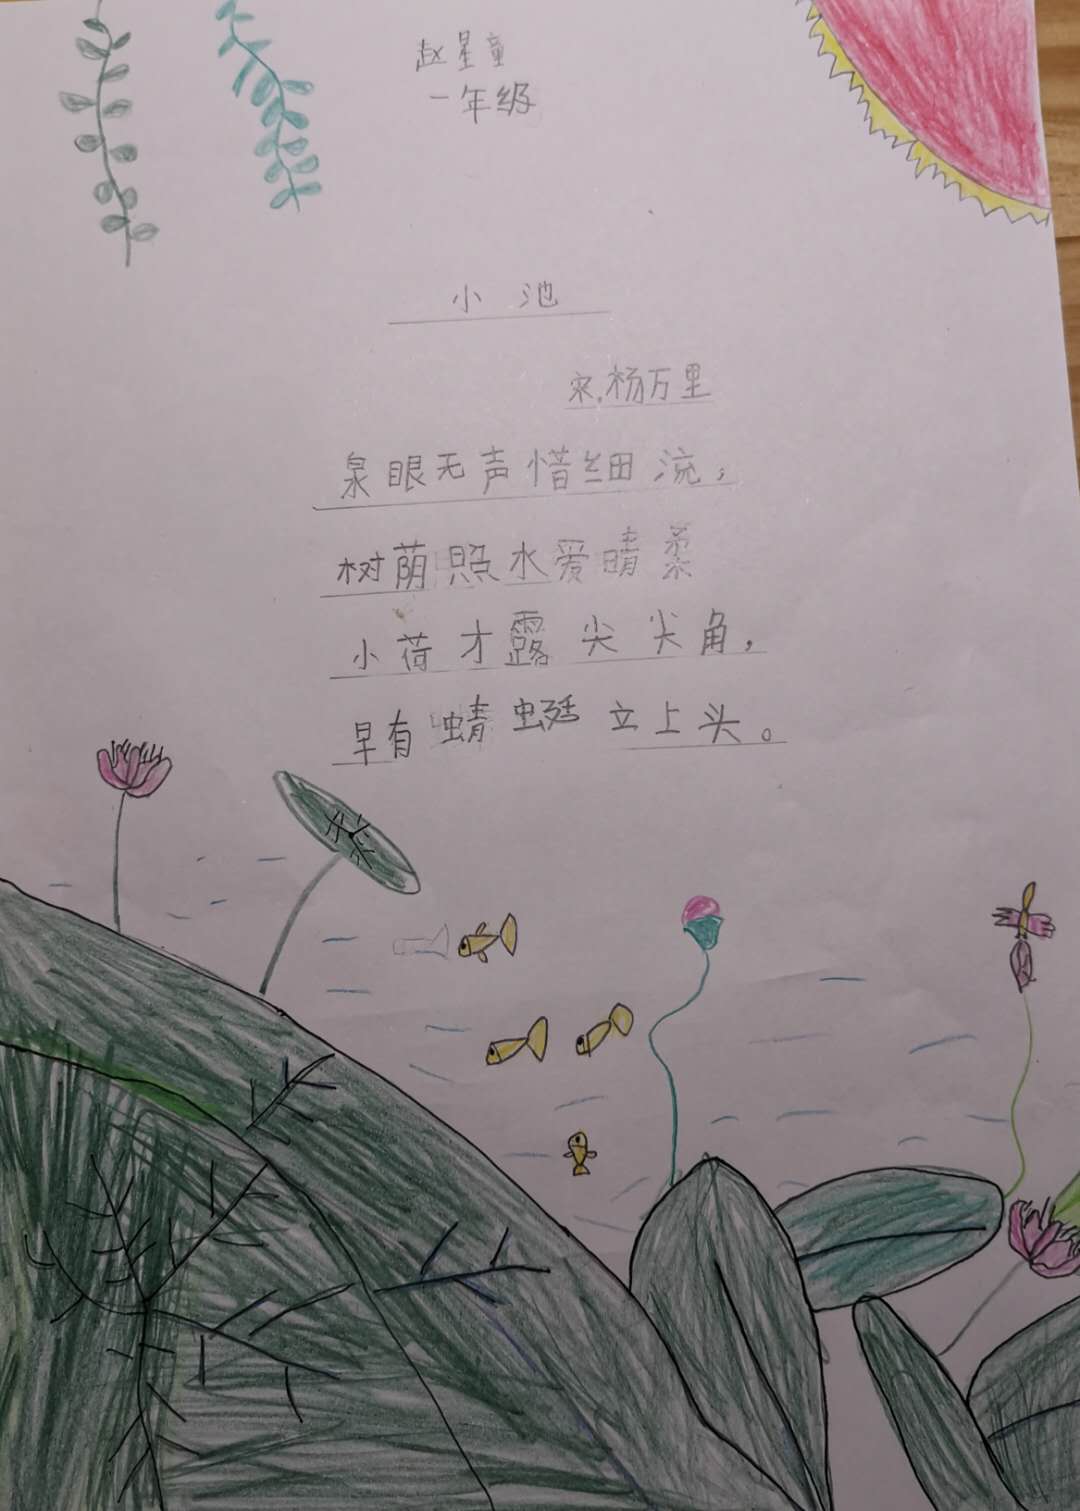 赵星童
一年级
小池
宋.杨万里
泉眼无声惜细流，
树荫照水爱晴柔
小荷才露尖尖角，
早有蜻蜓立上头。